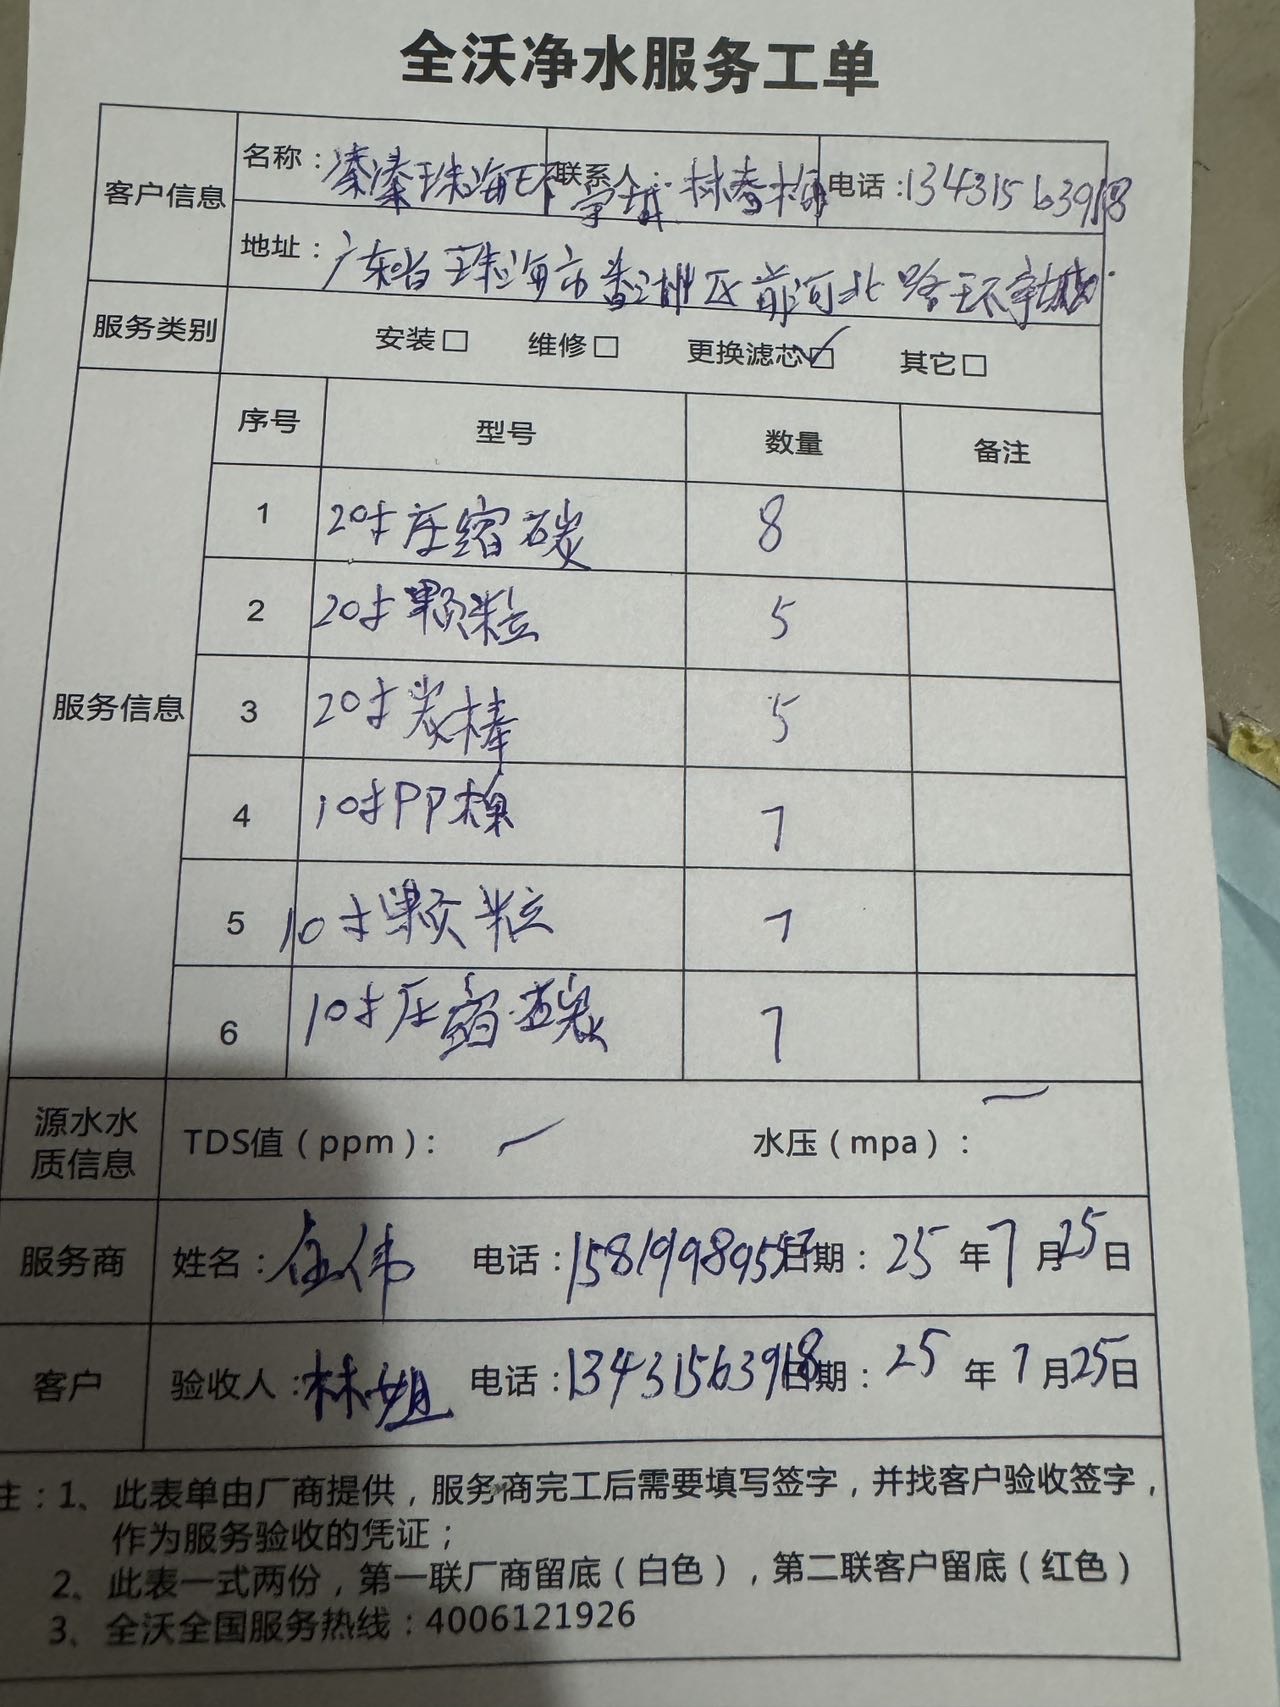 全沃净水服务工单
客户信息
名称：溱溱珠海环宇城 联系人：林春梅 电话：13431563918
地址：广东省珠海市香洲区前河北路环宇城
服务类别 安装□ 维修□ 更换滤芯☑ 其它□
服务信息
序号 型号 数量 备注
1 20寸压缩碳 8
2 20寸颗粒 5
3 20寸炭棒 5
4 10寸PP棉 7
5 10寸颗粒 7
6 10寸压缩碳 7
源水水质信息 TDS值（ppm）： 水压（mpa）：
服务商 姓名： 伟 电话：15819989557 日期：25年7月25日
客户 验收人：林姐 电话：13431563918 日期：25年7月25日
注：1、此表单由厂商提供，服务商完工后需要填写签字，并找客户验收签字，
作为服务验收的凭证；
2、此表一式两份，第一联厂商留底（白色），第二联客户留底（红色）
3、全沃全国服务热线：4006121926